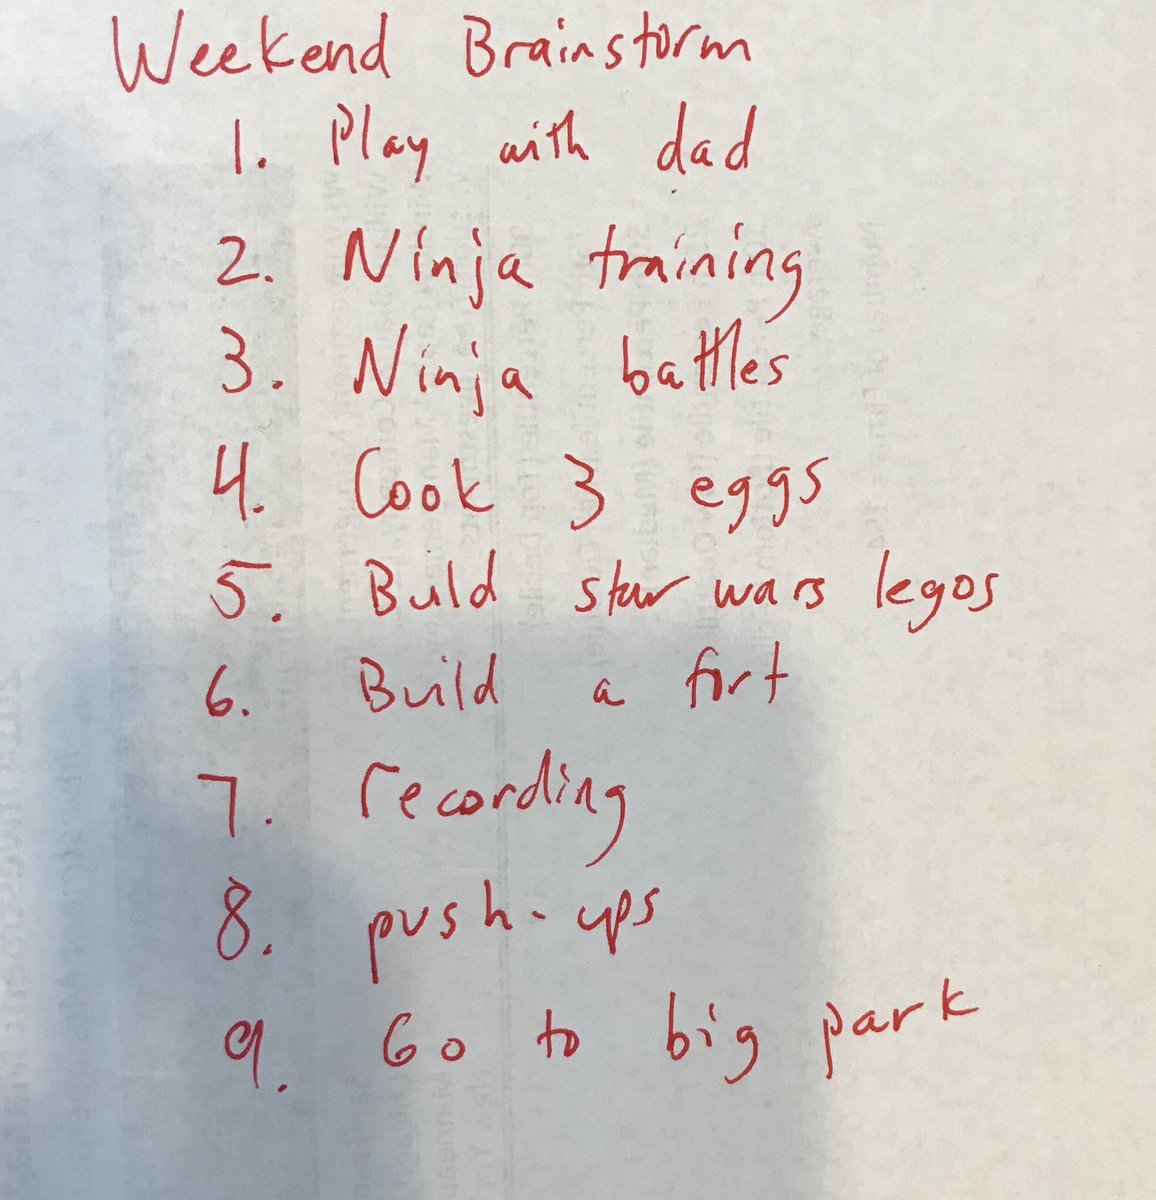 Weekend Brainstorm
1. Play with dad
2. Ninja training
3. Ninja battles
4. Cook 3 eggs
5. Buld star wars legos
6. Build a fort
7. recording
8. push-ups
9. Go to big park